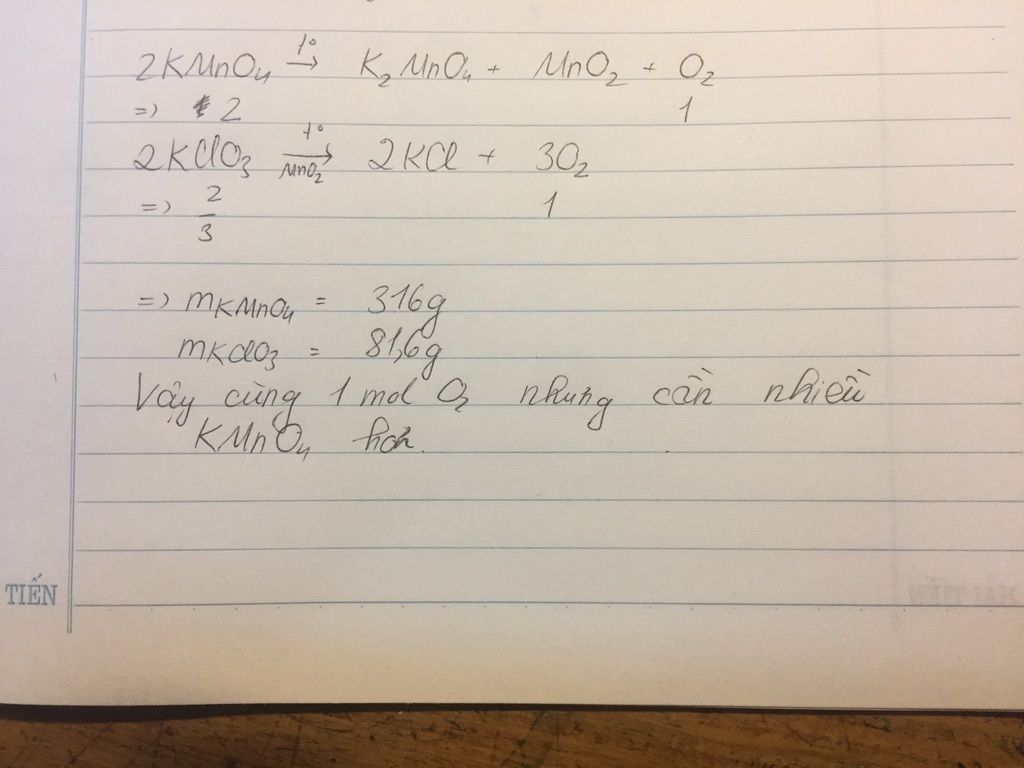 2KMnO₄ →(t°) K₂MnO₄ + MnO₂ + O₂
=> 2 1
2KClO₃ →(t°, MnO₂) 2KCl + 3O₂
=> 2/3 1
=> mKMnO₄ = 316g
mKClO₃ = 81,6g
Vậy cùng 1 mol O₂ nhưng cần nhiều
KMnO₄ hơn.
TIẾN
HẢI TIẾN